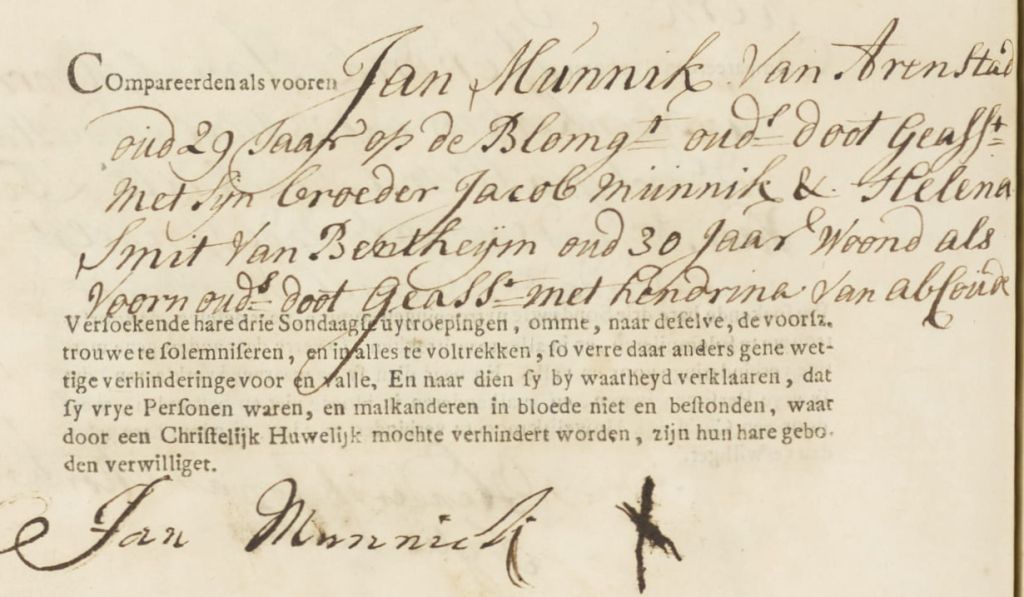 Compareerden als vooren Jan Munnik Van Arenstad
oud 29 Jaar op de Blomgt ouds doot Geasst
Met Sijn broeder Jacob Munnik & Helena
Smit Van Bentheijm oud 30 Jaar Woond als
Voorn ouds doot Geasst met hendrina Van abkoude
Versoekende hare drie Sondaagse uytroepingen, omme, naar deselve, de voorsz.
trouwe te solemniseren, en in alles te voltrekken, so verre daar anders gene wet-
tige verhinderinge voor en valle, En naar dien sy by waarheyd verklaaren, dat
sy vrye Personen waren, en malkanderen in bloede niet en bestonden, waar
door een Christelijk Huwelijk mochte verhindert worden, zijn hun hare gebo-
den verwilliget.
Jan Munnick X